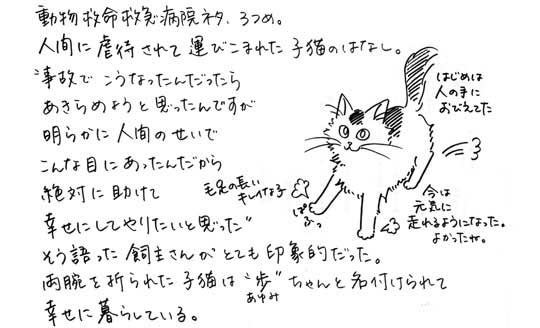 動物救命救急病院ネタ、3つめ。
人間に虐待されて運びこまれた子猫のはなし。
"事故でこうなったんだったら
あきらめようと思ったんですが
明らかに人間のせいで
こんな目にあったんだから
絶対に助けて
幸せにしてやりたいと思った"
そう語った飼主さんがとても印象的だった。
両腕を折られた子猫は"歩"ちゃんと名付けられて
あゆみ
幸せに暮らしている。
はじめは
人の手に
おびえてた
毛足の長い
キレイな子
ぱふっ
今は
元気に
走れるようになった。
よかったが。